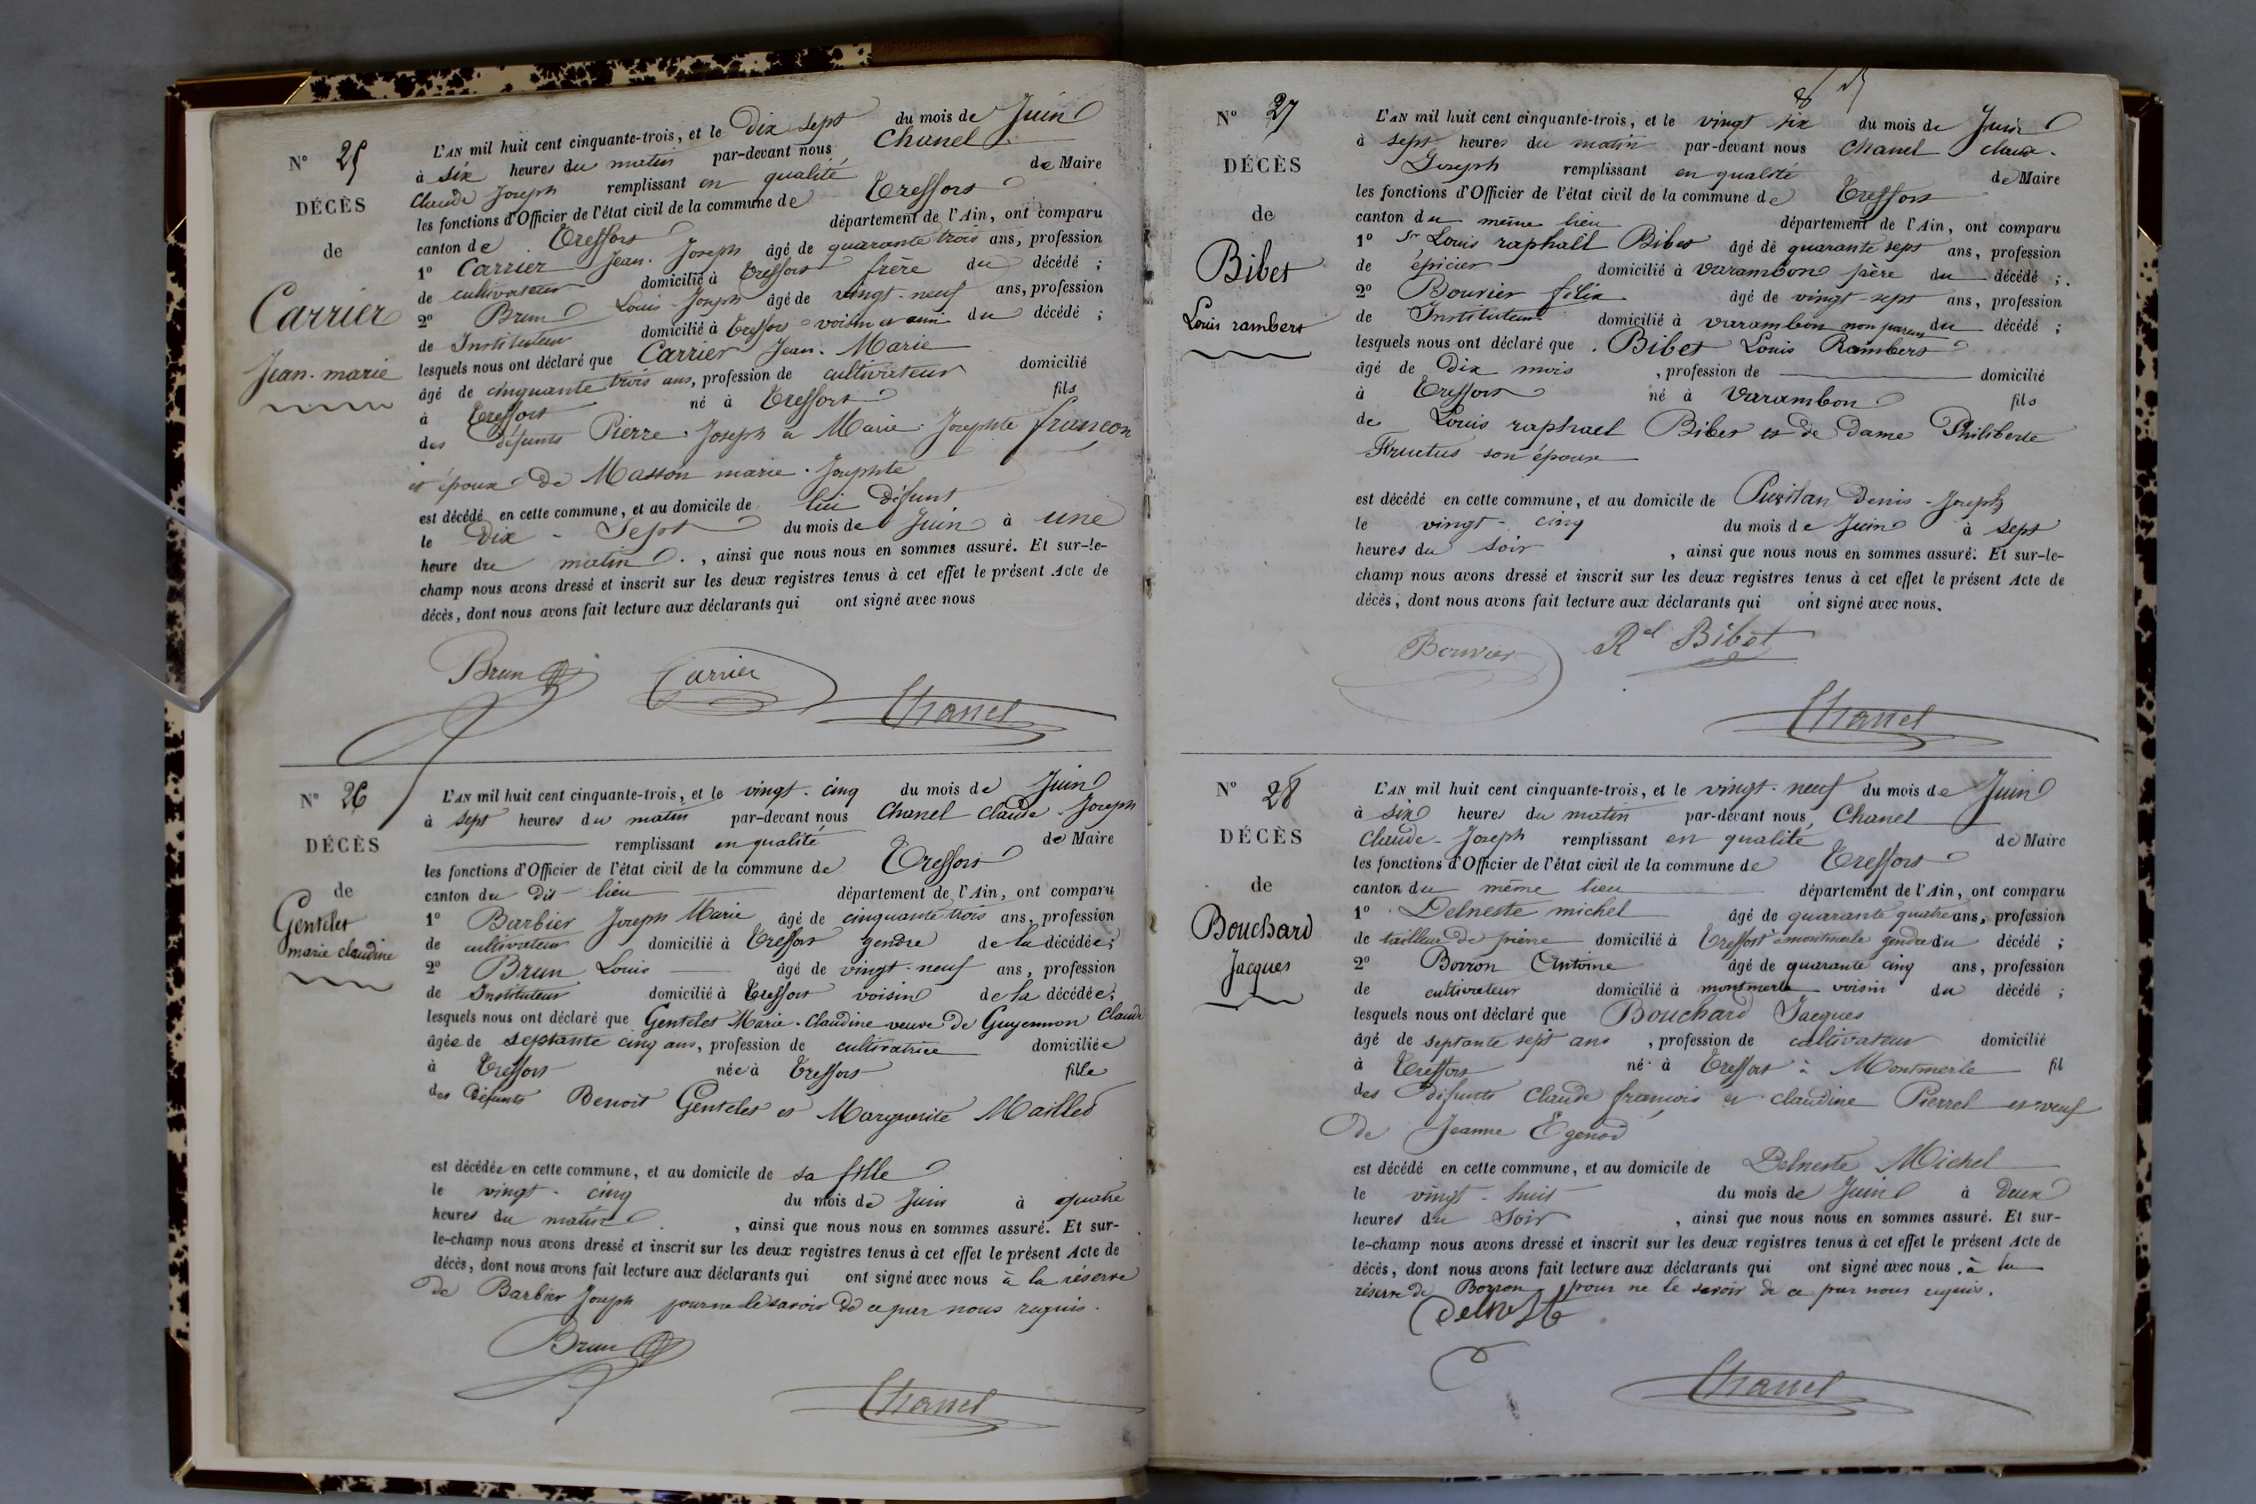 N° 25
DÉCÈS
de
Carrier
Jean-marie
L'AN mil huit cent cinquante-trois, et le Dix sept du mois de Juin
à six heures du matin par-devant nous Chanel
Claude Joseph remplissant en qualité de Maire
les fonctions d'Officier de l'état civil de la commune de Treffort
canton de Treffort département de l'Ain, ont comparu
1° Carrier Jean-Joseph âgé de quarante trois ans, profession
de cultivateur domicilié à Treffort frère du décédé ;
2° Brun Louis-Joseph âgé de vingt-neuf ans, profession
de Instituteur domicilié à Treffort voisin et ami du décédé ;
lesquels nous ont déclaré que Carrier Jean-Marie
âgé de cinquante trois ans, profession de cultivateur domicilié
à Treffort né à Treffort fils
des défunts Pierre Joseph et Marie Josephte françon
et époux de Masson marie-Josephte
est décédé en cette commune, et au domicile de lui défunt
le Dix-Sept du mois de Juin à une
heure du matin, ainsi que nous nous en sommes assuré. Et sur-le-
champ nous avons dressé et inscrit sur les deux registres tenus à cet effet le présent Acte de
décès, dont nous avons fait lecture aux déclarants qui ont signé avec nous
Brun Carrier
Chanel
N° 26
DÉCÈS
de
Gentelet
marie claudine
L'AN mil huit cent cinquante-trois, et le vingt-cinq du mois de Juin
à sept heures du matin par-devant nous Chanel Claude-Joseph
remplissant en qualité de Maire
les fonctions d'Officier de l'état civil de la commune de Treffort
canton du dit lieu département de l'Ain, ont comparu
1° Barbier Joseph Marie âgé de cinquante trois ans, profession
de cultivateur domicilié à Treffort gendre de la décédée ;
2° Brun Louis âgé de vingt-neuf ans, profession
de Instituteur domicilié à Treffort voisin de la décédée ;
lesquels nous ont déclaré que Gentelet Marie-Claudine veuve de Guyennon Claude
âgée de septante cinq ans, profession de cultivatrice domiciliée
à Treffort née à Treffort fille
des défunts Benoit Gentelet et Marguerite Maillet
est décédée en cette commune, et au domicile de sa fille
le vingt-cinq du mois de Juin à quatre
heures du matin, ainsi que nous nous en sommes assuré. Et sur-
le-champ nous avons dressé et inscrit sur les deux registres tenus à cet effet le présent Acte de
décès, dont nous avons fait lecture aux déclarants qui ont signé avec nous à la réserve
de Barbier Joseph pour ne le savoir de ce par nous requis.
Brun
Chanel
N° 27
DÉCÈS
de
Bibet
Louis rambert
L'AN mil huit cent cinquante-trois, et le vingt six du mois de Juin
à sept heures du matin par-devant nous Chanel claude-
Joseph remplissant en qualité de Maire
les fonctions d'Officier de l'état civil de la commune de Treffort
canton du même lieu département de l'Ain, ont comparu
1° Sr Louis raphaël Bibet âgé de quarante sept ans, profession
de épicier domicilié à varambon père du décédé ;
2° Bouvier félix âgé de vingt-sept ans, profession
de Instituteur domicilié à varambon non parent du décédé ;
lesquels nous ont déclaré que Bibet Louis Rambert
âgé de Dix mois, profession de domicilié
à Treffort né à varambon fils
de Louis raphael Bibet et de Dame Philiberte
Fructus son épouse
est décédé en cette commune, et au domicile de Denis-Joseph
le vingt-cinq du mois de Juin à sept
heures du soir, ainsi que nous nous en sommes assuré. Et sur-le-
champ nous avons dressé et inscrit sur les deux registres tenus à cet effet le présent Acte de
décès, dont nous avons fait lecture aux déclarants qui ont signé avec nous.
Bouvier Rel Bibet
Chanel
N° 28
DÉCÈS
de
Bouchard
Jacques
L'AN mil huit cent cinquante-trois, et le vingt-neuf du mois de Juin
à six heures du matin par-devant nous Chanel
Claude-Joseph remplissant en qualité de Maire
les fonctions d'Officier de l'état civil de la commune de Treffort
canton du même lieu département de l'Ain, ont comparu
1° Delneste michel âgé de quarante quatre ans, profession
de tailleur de pierre domicilié à Treffort à montmerle gendre du décédé ;
2° Borron Antoine âgé de quarante cinq ans, profession
de cultivateur domicilié à montmerle voisin du décédé ;
lesquels nous ont déclaré que Bouchard Jacques
âgé de septante sept ans, profession de cultivateur domicilié
à Treffort né à Treffort à Montmerle fil
des défunts Claude françois et claudine Pierrel et veuf
de Jeanne Egenod
est décédé en cette commune, et au domicile de Delneste Michel
le vingt-huit du mois de Juin à Deux
heures du Soir, ainsi que nous nous en sommes assuré. Et sur-
le-champ nous avons dressé et inscrit sur les deux registres tenus à cet effet le présent Acte de
décès, dont nous avons fait lecture aux déclarants qui ont signé avec nous. à la
réserve de Borron pour ne le savoir de ce par nous requis.
Delneste
Chanel